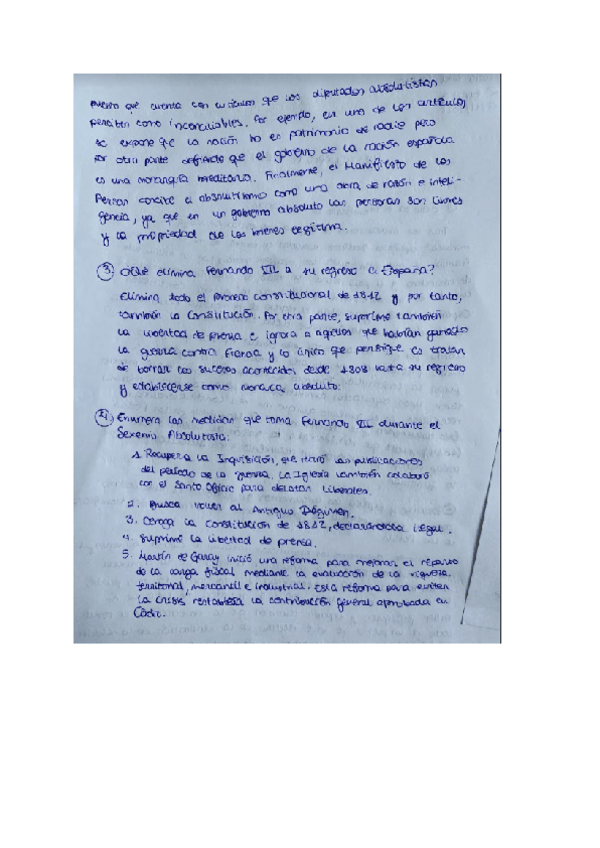 puesto que cuenta con artículos que los diputados absolutistas
perciben como inconciliables. Por ejemplo, en uno de los artículos
se expone que la nación no es patrimonio de nadie pero
por otra parte defiende que el gobierno de la nación española
es una monarquía hereditaria. Finalmente, el Manifiesto de los
Persas concibe el absolutismo como una obra de razón e inteli-
gencia, ya que en un gobierno absoluto las personas son libres
y la propiedad de los bienes legítima.
3. ¿Qué elimina Fernando VII a su regreso a España?
Elimina todo el proceso constitucional de 1812 y por tanto,
también la Constitución. Por otra parte, suprime también
la libertad de prensa e ignora a aquellos que habían ganado
la guerra contra Francia y lo único que persigue es tratar
de borrar los sucesos acontecidos desde 1808 hasta su regreso
y establecerse como monarca absoluto.
4. Enumera las medidas que toma Fernando VII durante el
Sexenio Absolutista:
1. Recupera la Inquisición, que retiró las publicaciones
del período de la guerra. La Iglesia también colaboró
con el Santo Oficio para delatar liberales.
2. Busca volver al Antiguo Régimen.
3. Deroga la Constitución de 1812, declarándola ilegal.
4. Suprime la libertad de prensa.
5. Martín de Garay inició una reforma para mejorar el reparto
de la carga fiscal mediante la evaluación de la riqueza
territorial, mercantil e industrial. Esta reforma para evitar
la crisis restablecía la contribución general aprobada en
Cádiz.